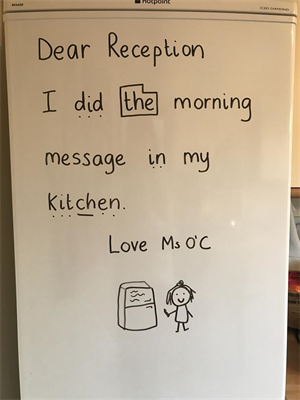 Hotpoint
Dear Reception
I did the morning
message in my
kitchen.
Love Ms O'C